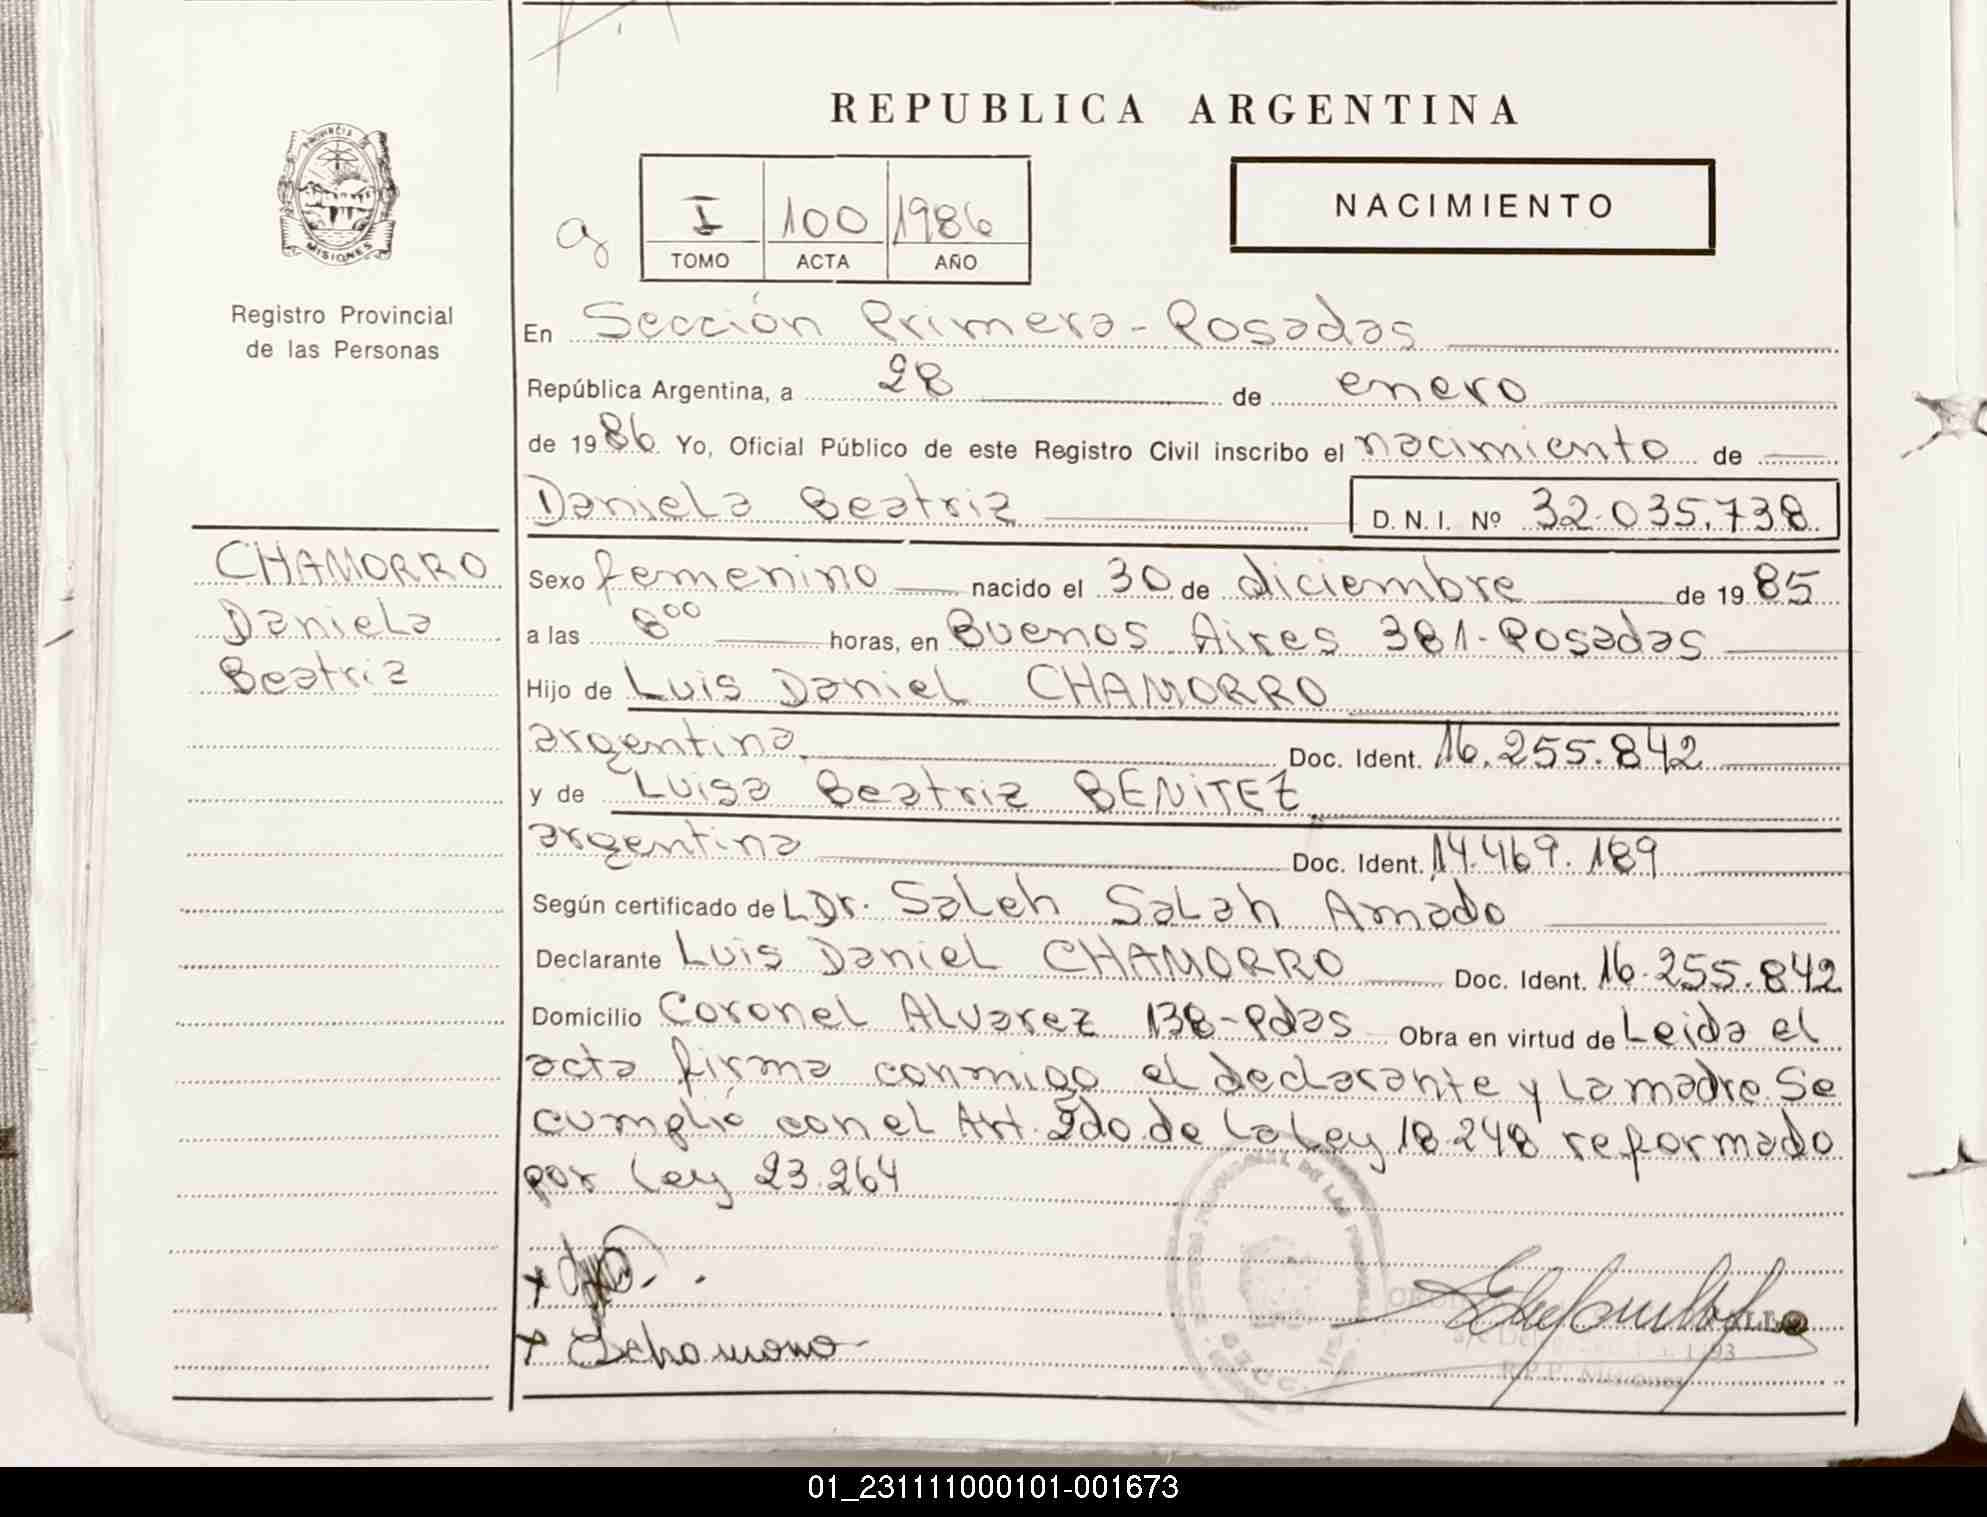 REPUBLICA ARGENTINA
PROVINCIA
MISIONES
Registro Provincial
de las Personas
I 100 1986
TOMO ACTA AÑO
NACIMIENTO
En Sección Primera-Posadas
República Argentina, a 28 de enero
de 1986 Yo, Oficial Público de este Registro Civil inscribo el nacimiento de
Daniela Beatriz D. N. I. Nº 32.035.738
CHAMORRO
Daniela
Beatriz
Sexo femenino nacido el 30 de diciembre de 1985
a las 8⁰⁰ horas, en Buenos Aires 381-Posadas
Hijo de Luis Daniel CHAMORRO
argentina Doc. Ident. 16.255.842
y de Luisa Beatriz BENITEZ
argentina Doc. Ident. 14.469.189
Según certificado de L Dr. Saleh Salah Amado
Declarante Luis Daniel CHAMORRO Doc. Ident. 16.255.842
Domicilio Coronel Alvarez 138-Pdas Obra en virtud de Leida el
acta firma conmigo el declarante y la madre. Se
cumplió con el Art. 2do de la Ley 18.248 reformado
por Ley 23.264
R.P.P. Misiones
01_231111000101-001673